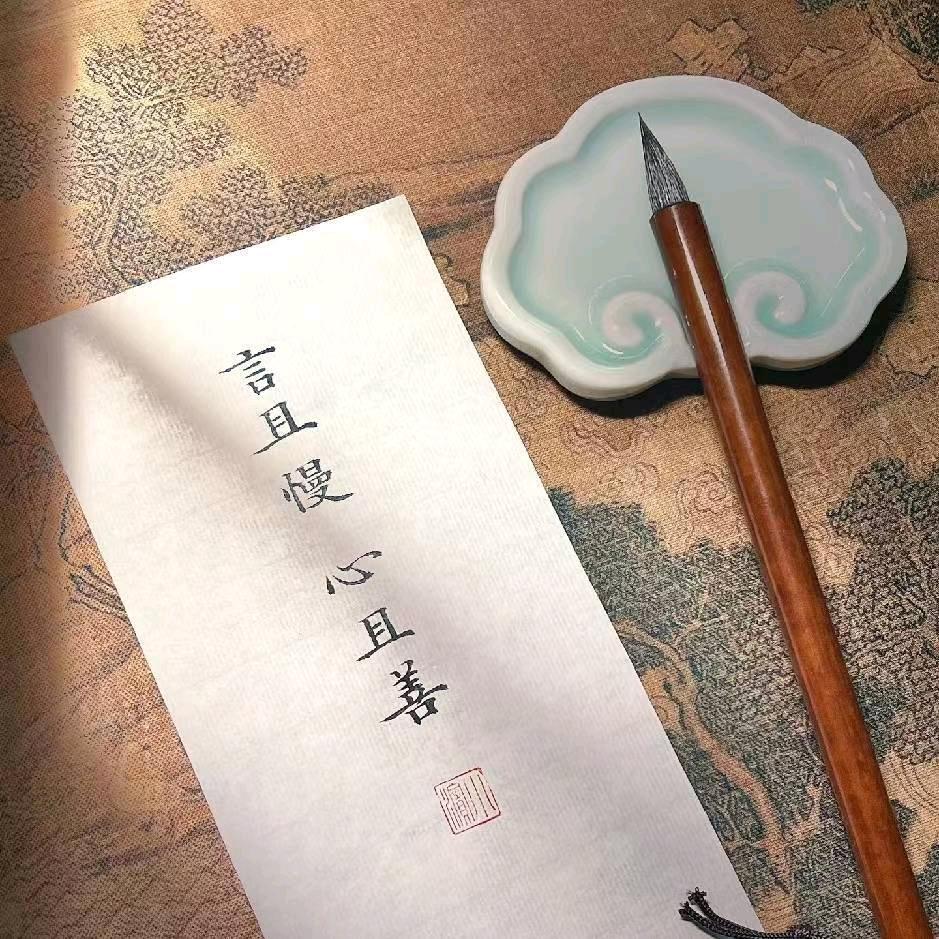 言且慢 心且善